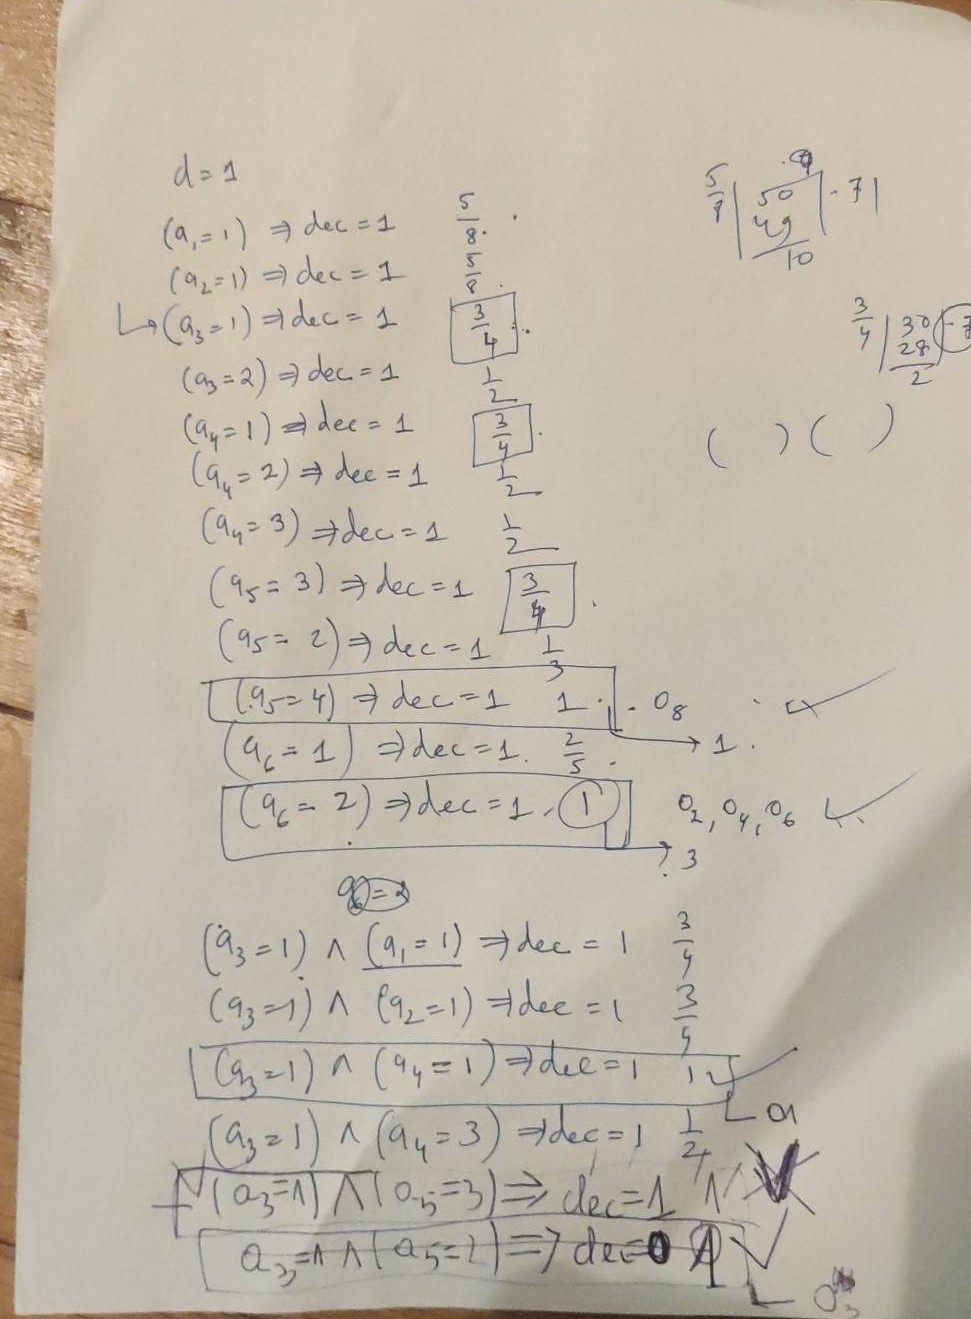 d = 1
(a₁ = 1) ⇒ dec = 1 5/8
(a₂ = 1) ⇒ dec = 1 5/8
↳ (a₃ = 1) ⇒ dec = 1 3/4
(a₃ = 2) ⇒ dec = 1 1/2
(a₄ = 1) ⇒ dec = 1 3/4
(a₄ = 2) ⇒ dec = 1 1/2
(a₄ = 3) ⇒ dec = 1 1/2
(a₅ = 3) ⇒ dec = 1 3/4
(a₅ = 2) ⇒ dec = 1 1/3
(a₅ = 4) ⇒ dec = 1 1 . O₈ ✓
→ 1.
(a₆ = 1) ⇒ dec = 1. 2/5
(a₆ = 2) ⇒ dec = 1. 1 O₂, O₄, O₆ ✓
→ 3
(a₃ = 1) ∧ (a₁ = 1) ⇒ dec = 1 3/4
(a₃ = 1) ∧ (a₂ = 1) ⇒ dec = 1 3/4
(a₃ = 1) ∧ (a₄ = 1) ⇒ dec = 1 1 ✓
(a₃ = 1) ∧ (a₄ = 3) ⇒ dec = 1 1/2
(a₃ = 1) ∧ (a₅ = 3) ⇒ dec = 1 1
a₃ = 1 ∧ (a₅ = 2) ⇒ dec = 0 1 ✓
5/7 | 50 | .71
49
10
3/4 | 30
28
2
( ) ( )